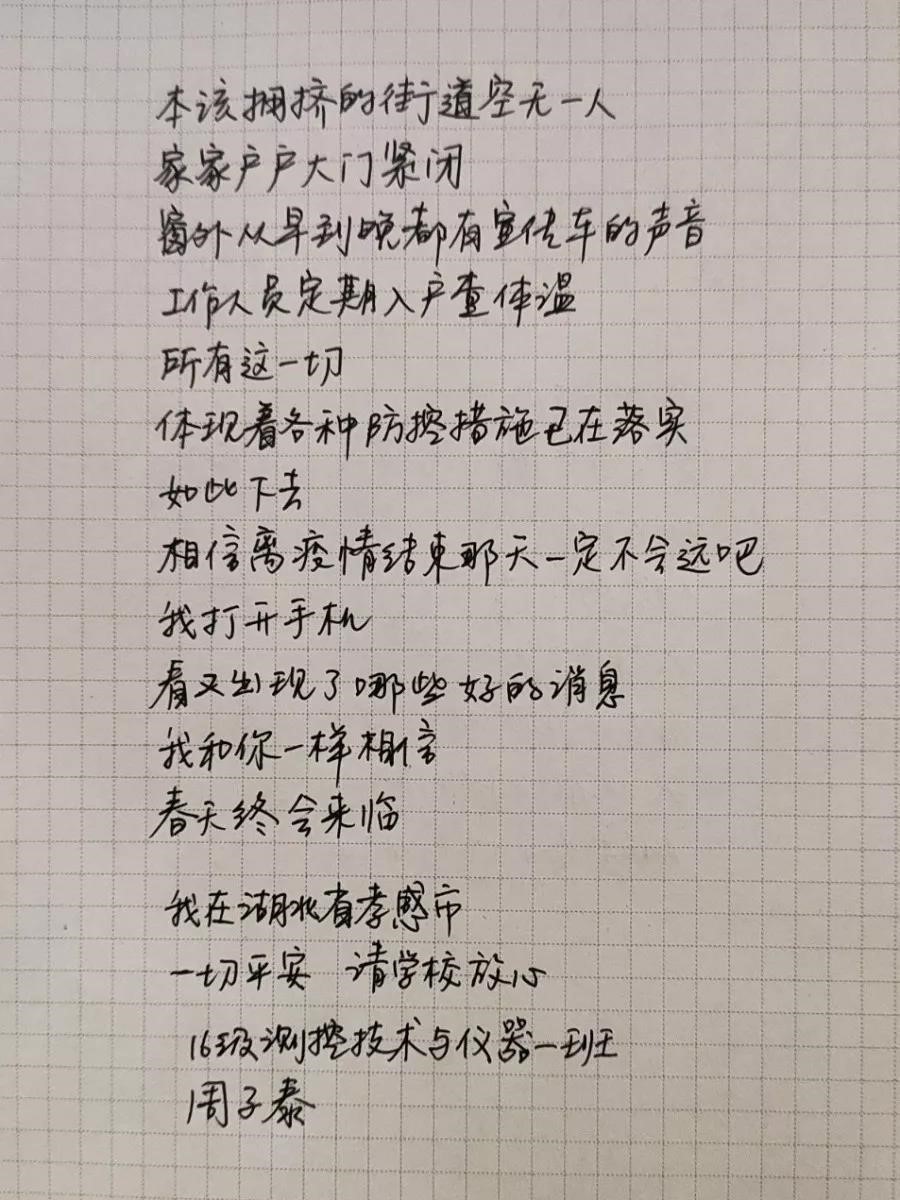 本该拥挤的街道空无一人
家家户户大门紧闭
窗外从早到晚都有宣传车的声音
工作人员定期入户查体温
所有这一切
体现着各种防控措施已在落实
如此下去
相信离疫情结束那天一定不会远吧
我打开手机
看又出现了哪些好的消息
我和你一样相信
春天终会来临
我在湖北省孝感市
一切平安 请学校放心
16级测控技术与仪器一班
周子泰